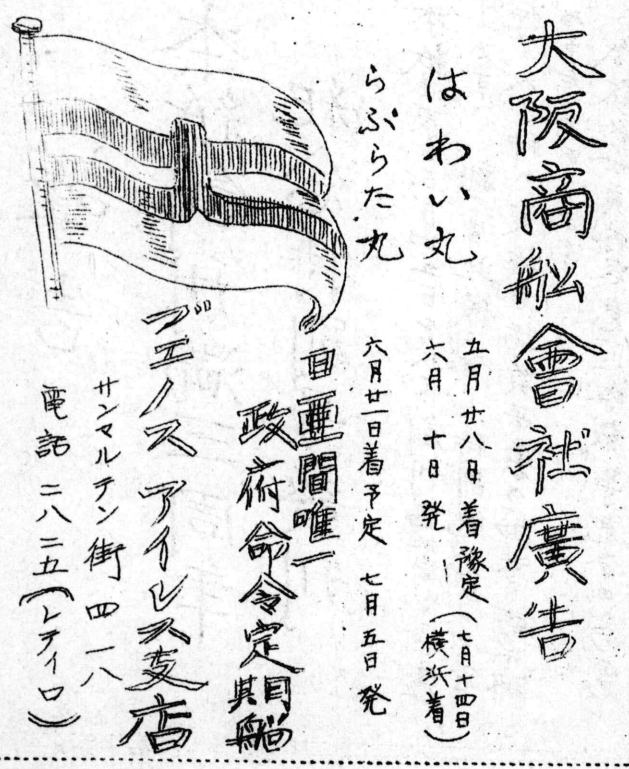 大阪商船會社廣告
はわい丸
五月廿八日着豫定
六月十日発
(七月十四日
横浜着)
らぷらた丸
六月廿一日着予定 七月五日発
日亜間唯一
政府命令定期船
ブエノスアイレス支店
サンマルテン街四一八
電話二八二五(レティロ)